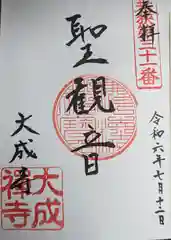 奉拝
三十一番
聖観音
大成寺
令和六年七月十二日
大成
禅寺